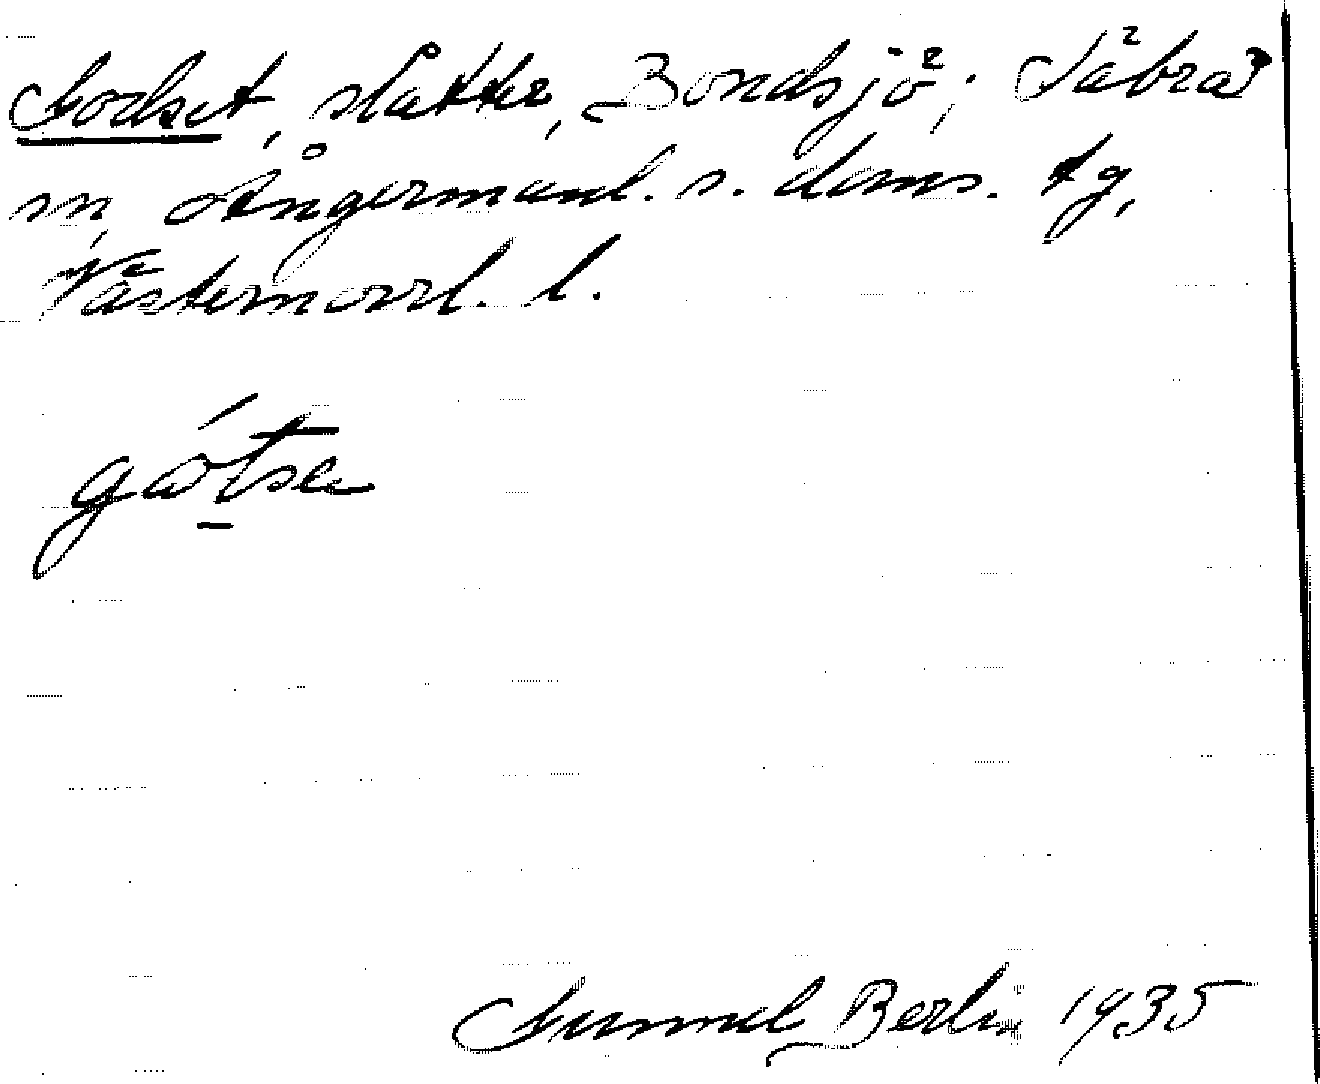 Godset, slåtter, Bondsjö, Säbrå
sn, Ångermanl. s. doms. tg,
Västernorrl. l.
gótse
Gunnel Berlin 1935